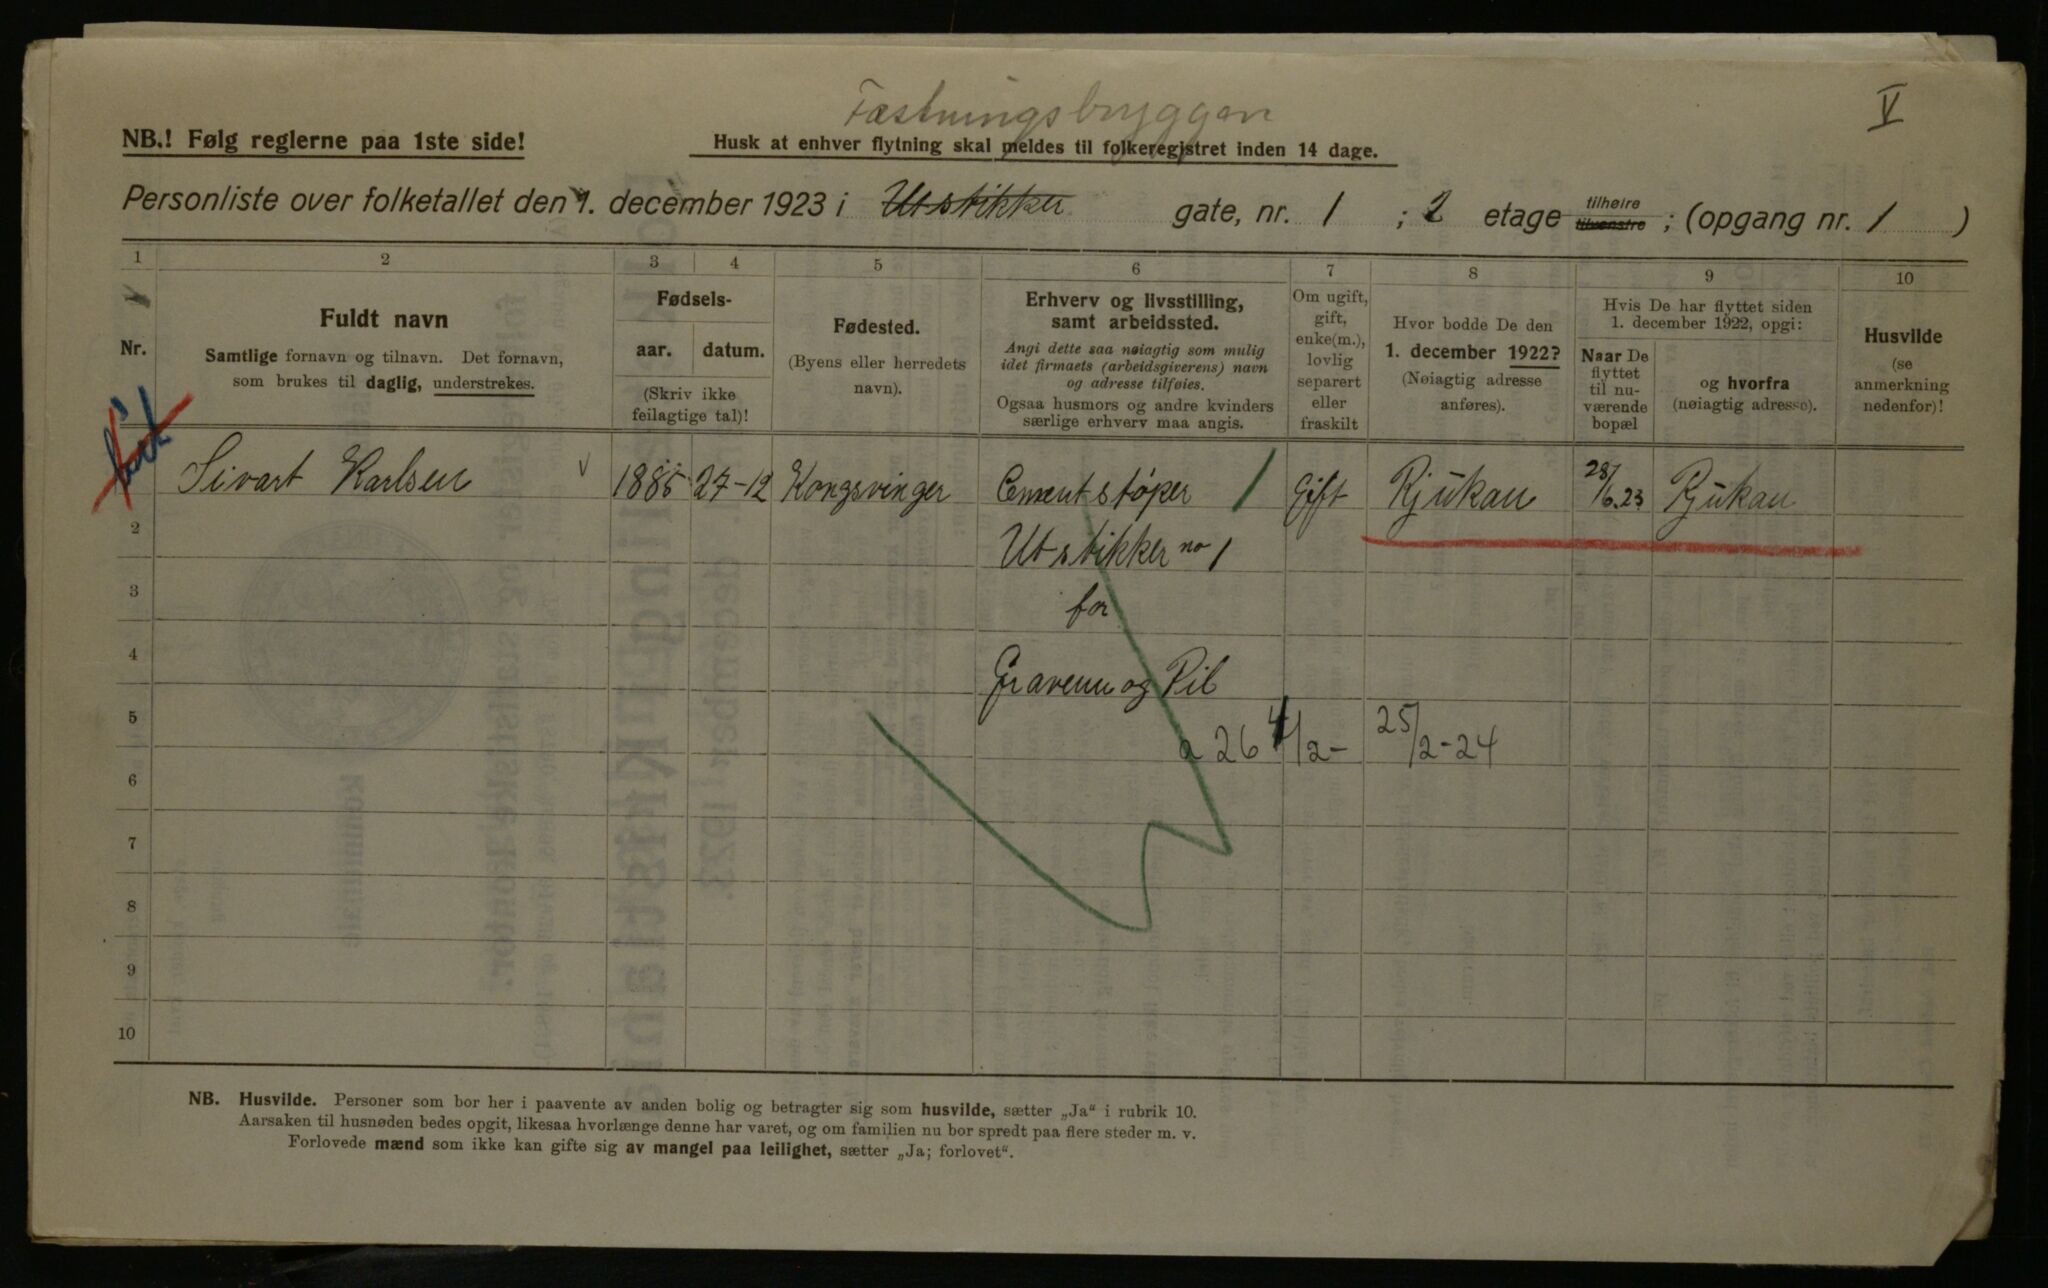 Fæstningsbryggen
V
NB.! Følg reglerne paa 1ste side!
Husk at enhver flytning skal meldes til folkeregistret inden 14 dage.
Personliste over folketallet den 1. december 1923 i Utstikker gate, nr. 1 ; 2 etage tilhøire tilvenstre ; (opgang nr. 1 )
1 2 3 4 5 6 7 8 9 10
Nr.
Fuldt navn
Samtlige fornavn og tilnavn. Det fornavn,
som brukes til daglig, understrekes.
Fødsels-
aar. datum.
(Skriv ikke
feilagtige tal)!
Fødested.
(Byens eller herredets
navn).
Erhverv og livsstilling,
samt arbeidssted.
Angi dette saa nøiagtig som mulig
idet firmaets (arbeidsgiverens) navn
og adresse tilføies.
Ogsaa husmors og andre kvinders
særlige erhverv maa angis.
Om ugift,
gift,
enke(m.),
lovlig
separert
eller
fraskilt
Hvor bodde De den
1. december 1922?
(Nøiagtig adresse
anføres).
Hvis De har flyttet siden
1. december 1922, opgi:
Naar De
flyttet
til nu-
værende
bopæl
og hvorfra
(nøiagtig adresse).
Husvilde
(se
anmerkning
nedenfor)!
Sivart Karlsen 1885 27-12 Kongsvinger Cementstøper Gift Rjukan 28/6.23 Rjukan
2 Utstikker no 1
3 for
4 og Pil
5
a 26 4/2- 25/2-24
6
7
8
9
10
NB. Husvilde. Personer som bor her i paavente av anden bolig og betragter sig som husvilde, sætter „Ja“ i rubrik 10.
Aarsaken til husnøden bedes opgit, likesaa hvorlænge denne har varet, og om familien nu bor spredt paa flere steder m. v.
Forlovede mænd som ikke kan gifte sig av mangel paa leilighet, sætter „Ja; forlovet“.